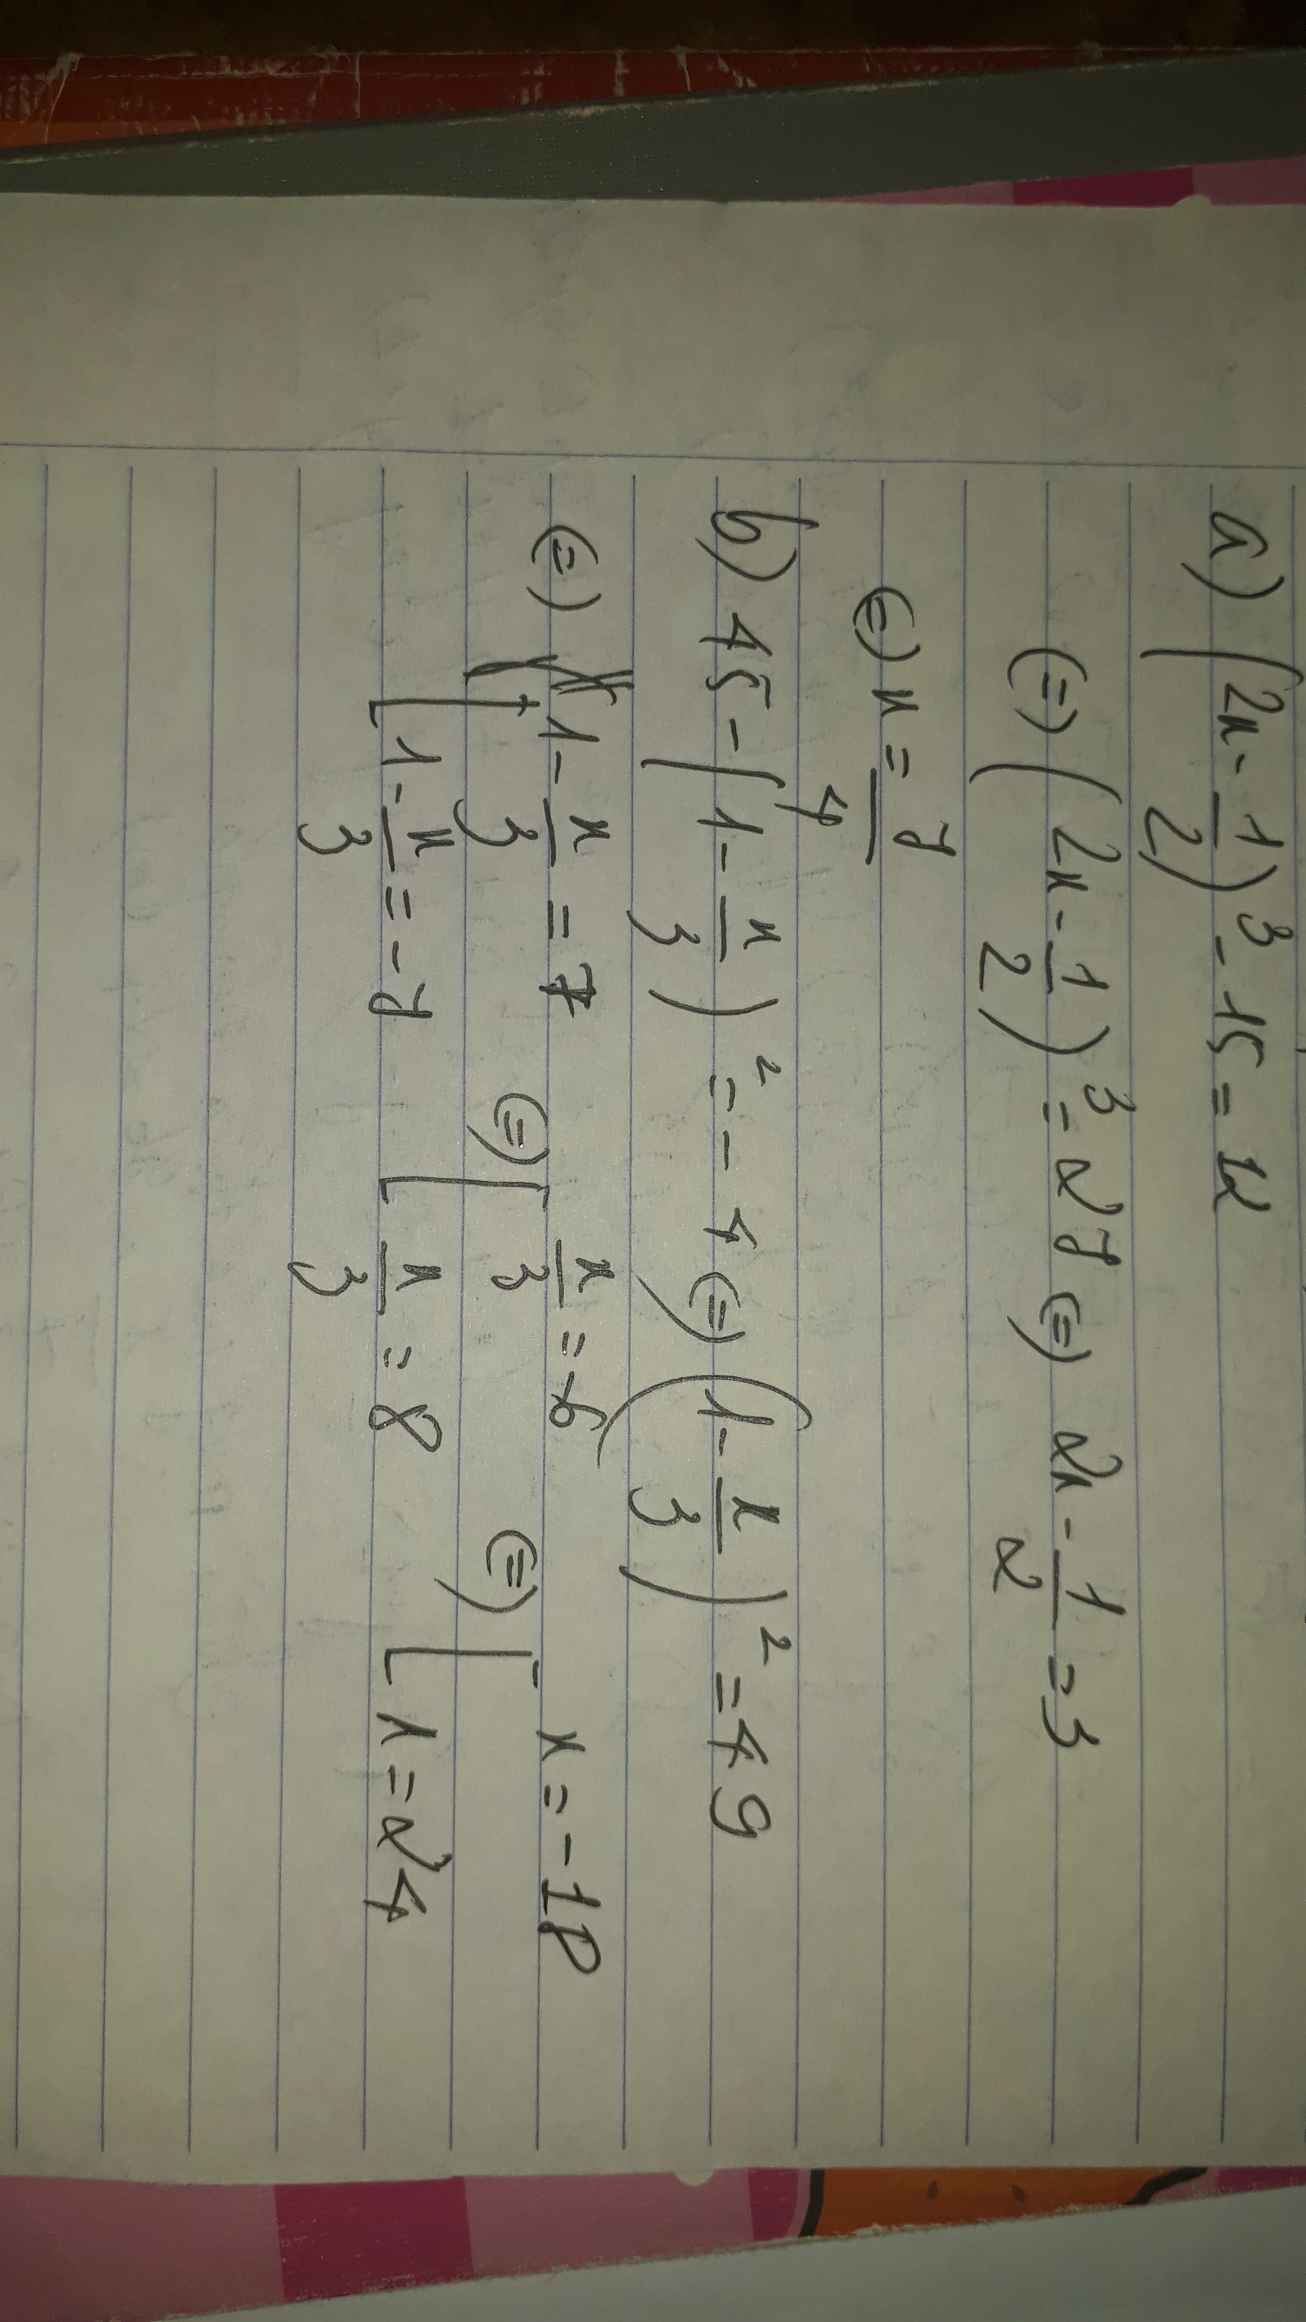 a) (2x - 1/2)³ - 15 = 12
(=) (2x - 1/2)³ = 27 (=) 2x - 1/2 = 3
(=) x = 7/4
b) 45 - (1 - x/3)² = -4 (=) (1 - x/3)² = 49
(=) [ 1 - x/3 = 7 (=) [ x/3 = -6 (=) [ x = -18
[ 1 - x/3 = -7 [ x/3 = 8 [ x = 24